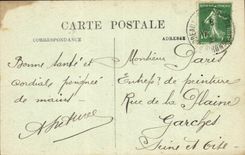 CARTE POSTALE
CORRESPONDANCE
ADRESSE
Bonne santé et
Cordiale poignée
de mains
Monsieur Paris
Entrepr de peinture
Rue de la Plaine
Garches
Seine et Oise